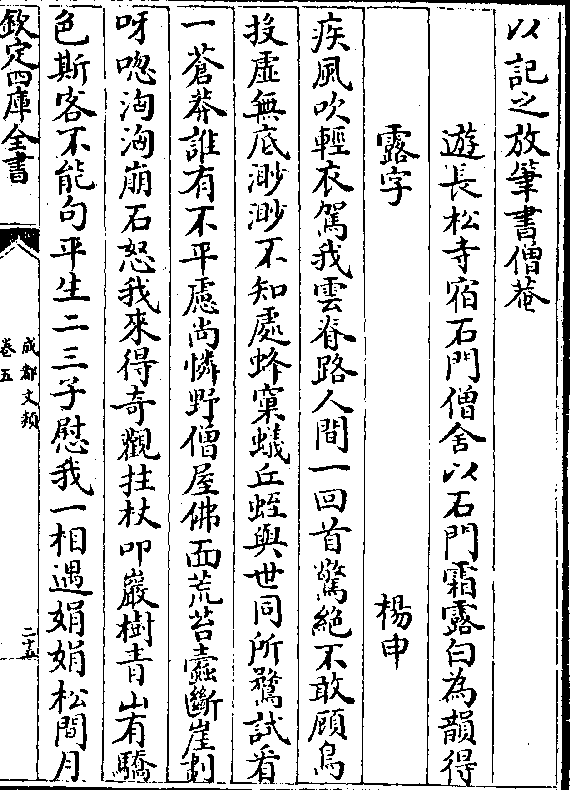 以記之放筆書僧菴
遊長松寺宿石門僧舍以石門霜露白為韻得
露字　楊申
疾風吹輕衣駕我雲脊路人間一回首驚絶不敢顧鳥
投虛無底渺渺不知處蜂窠蟻丘蛭與世同所驚試看
一蒼莽誰有不平慮尚憐野僧屋佛面荒苔蠧斷崖割
呀喼洶洶崩石怒我來得奇觀拄杖叩巖樹青山有驕
色斯客不能句平生二三子慰我一相遇娟娟松間月
欽定四庫全書
成都文類
卷五
二十五